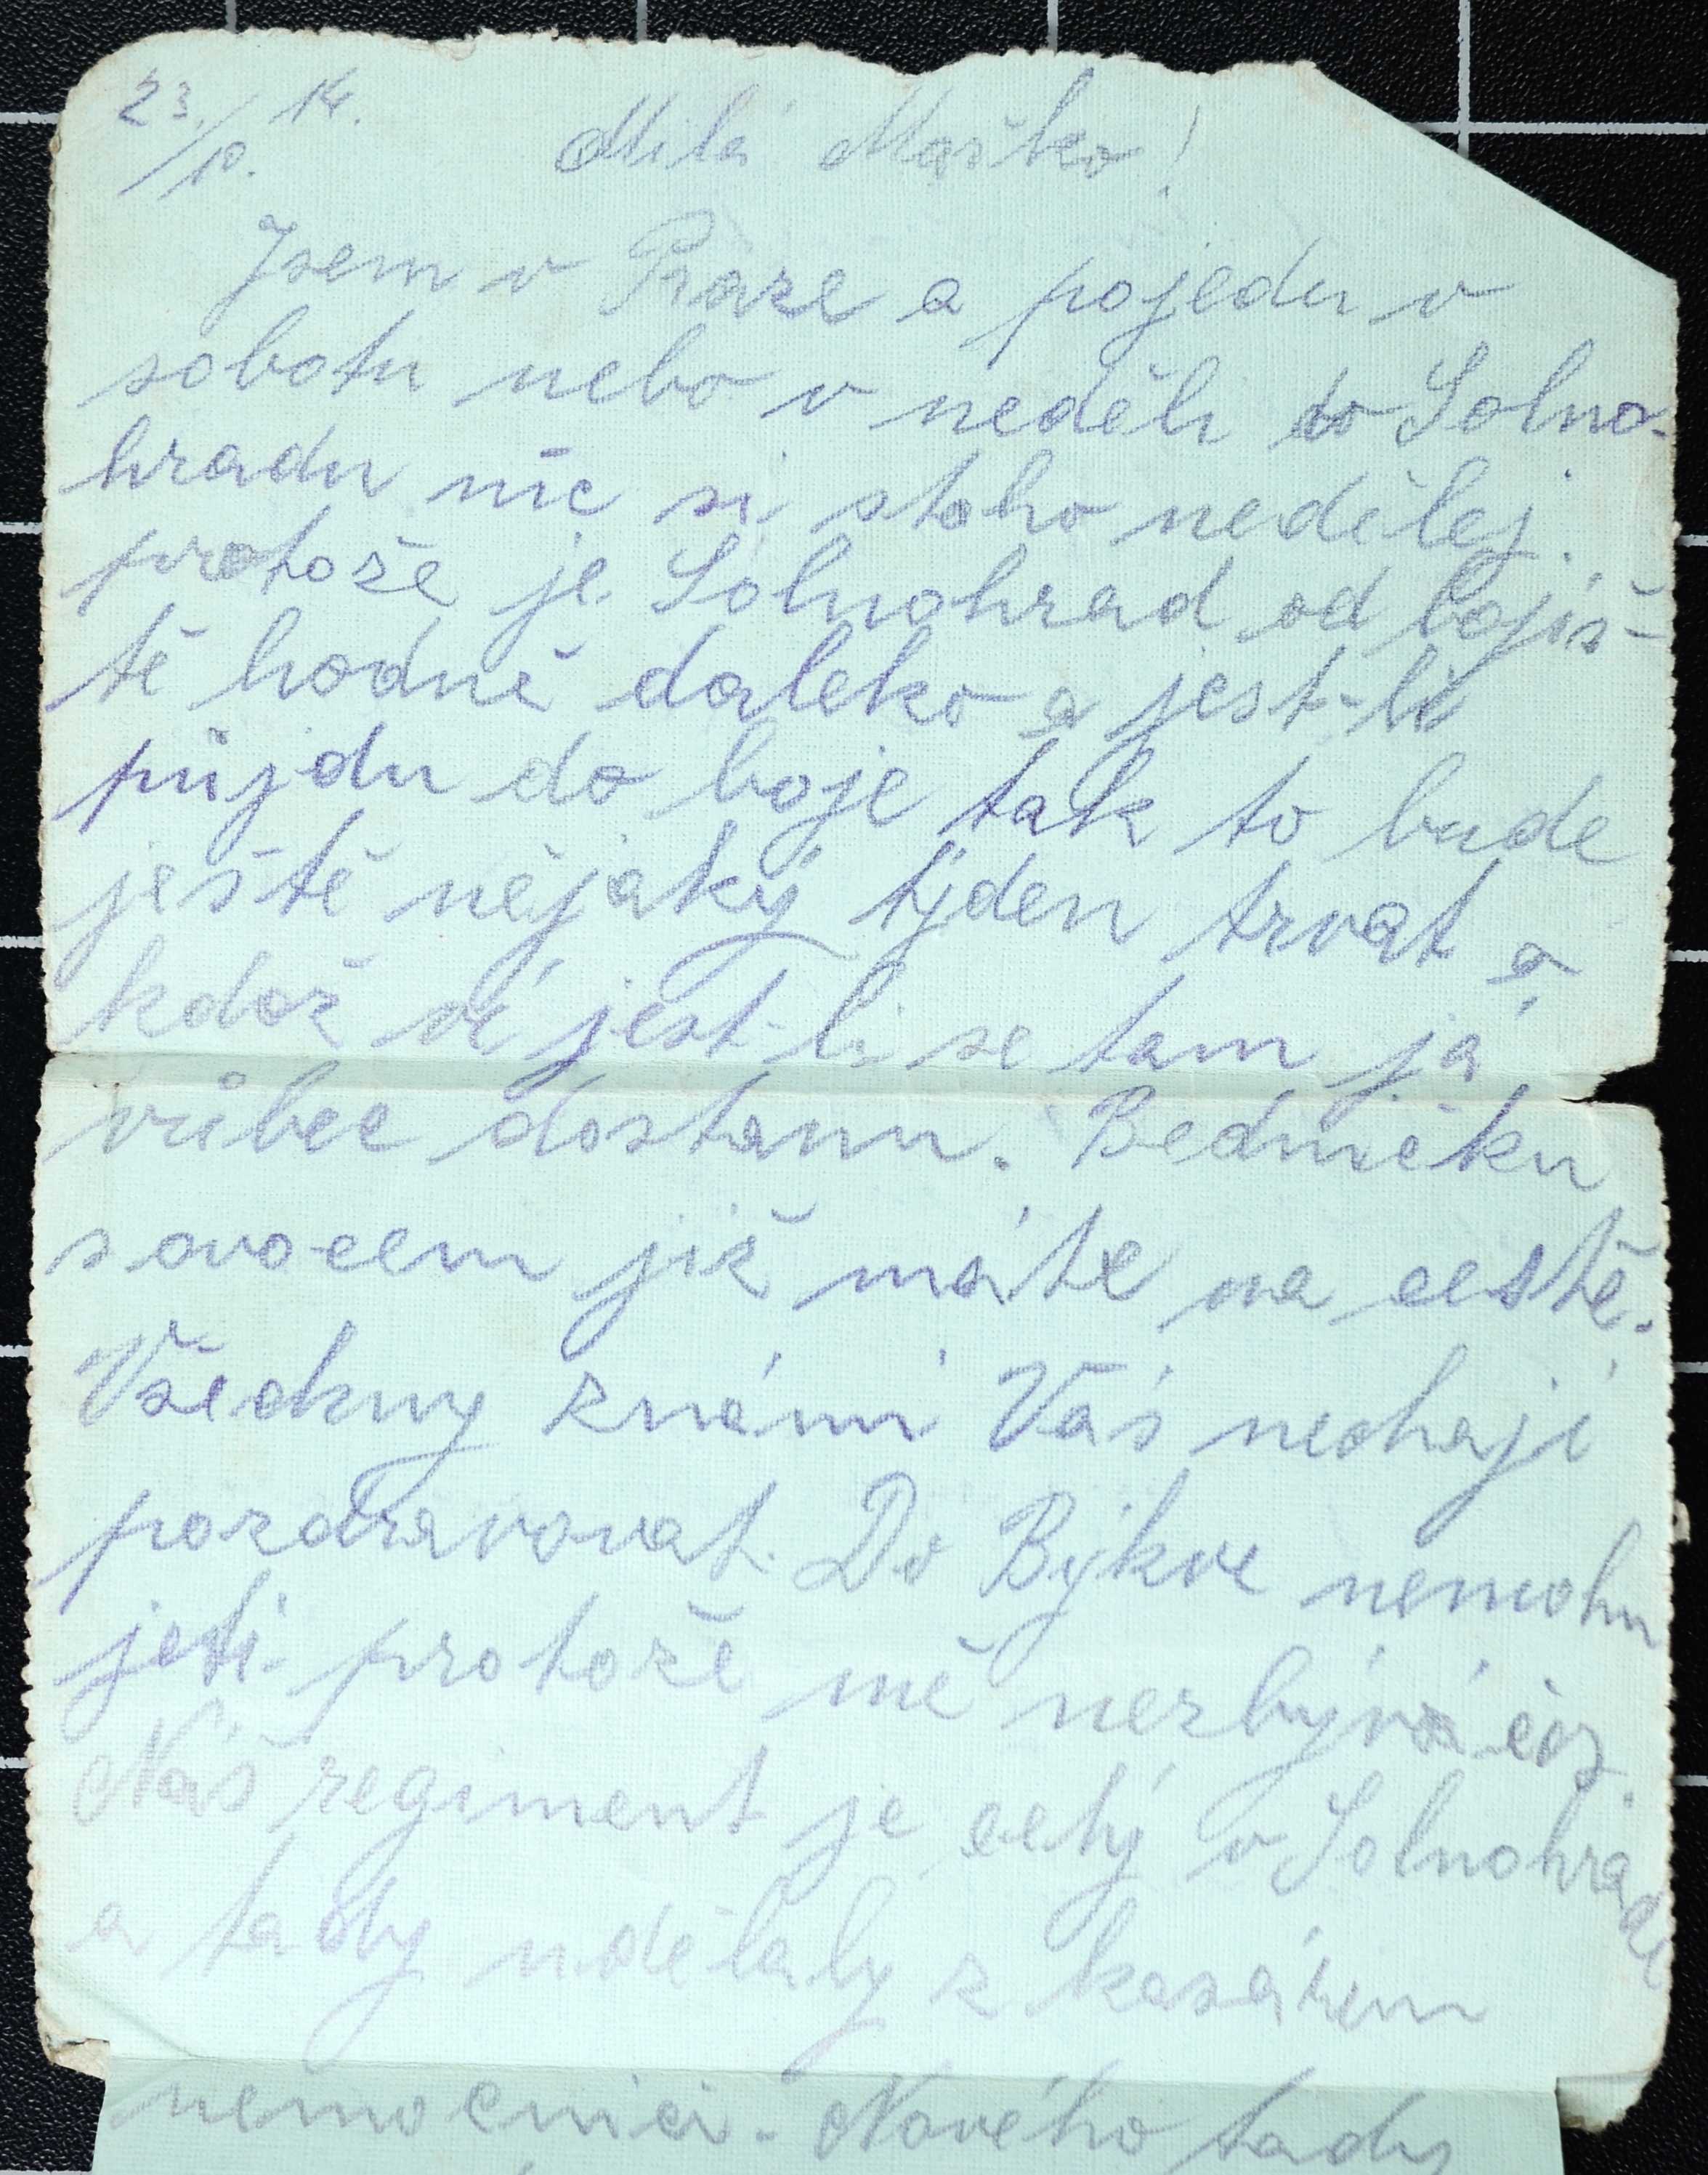 23./10. 14.
Milá Mařko!
Jsem v Praze a pojedu v
sobotu nebo v neděli do Solno-
hradu nic si stoho nedělej.
protože je Solnohrad od bojiš-
tě hodně daleko a jest-li
půjdu do boje tak to bude
ještě nějaký týden trvat a
kdož ví jest-li se tam já
vůbec dostanu. Bedničku
s ovocem již máte na cestě.
Všechny známí Vás nechají
pozdravovat. Do Býkve nemohu
jeti protože mě nezbývá čas.
Náš regiment je celý v Solnohradě
a tady udělaly z kasáren
nemocnici. Nového tady